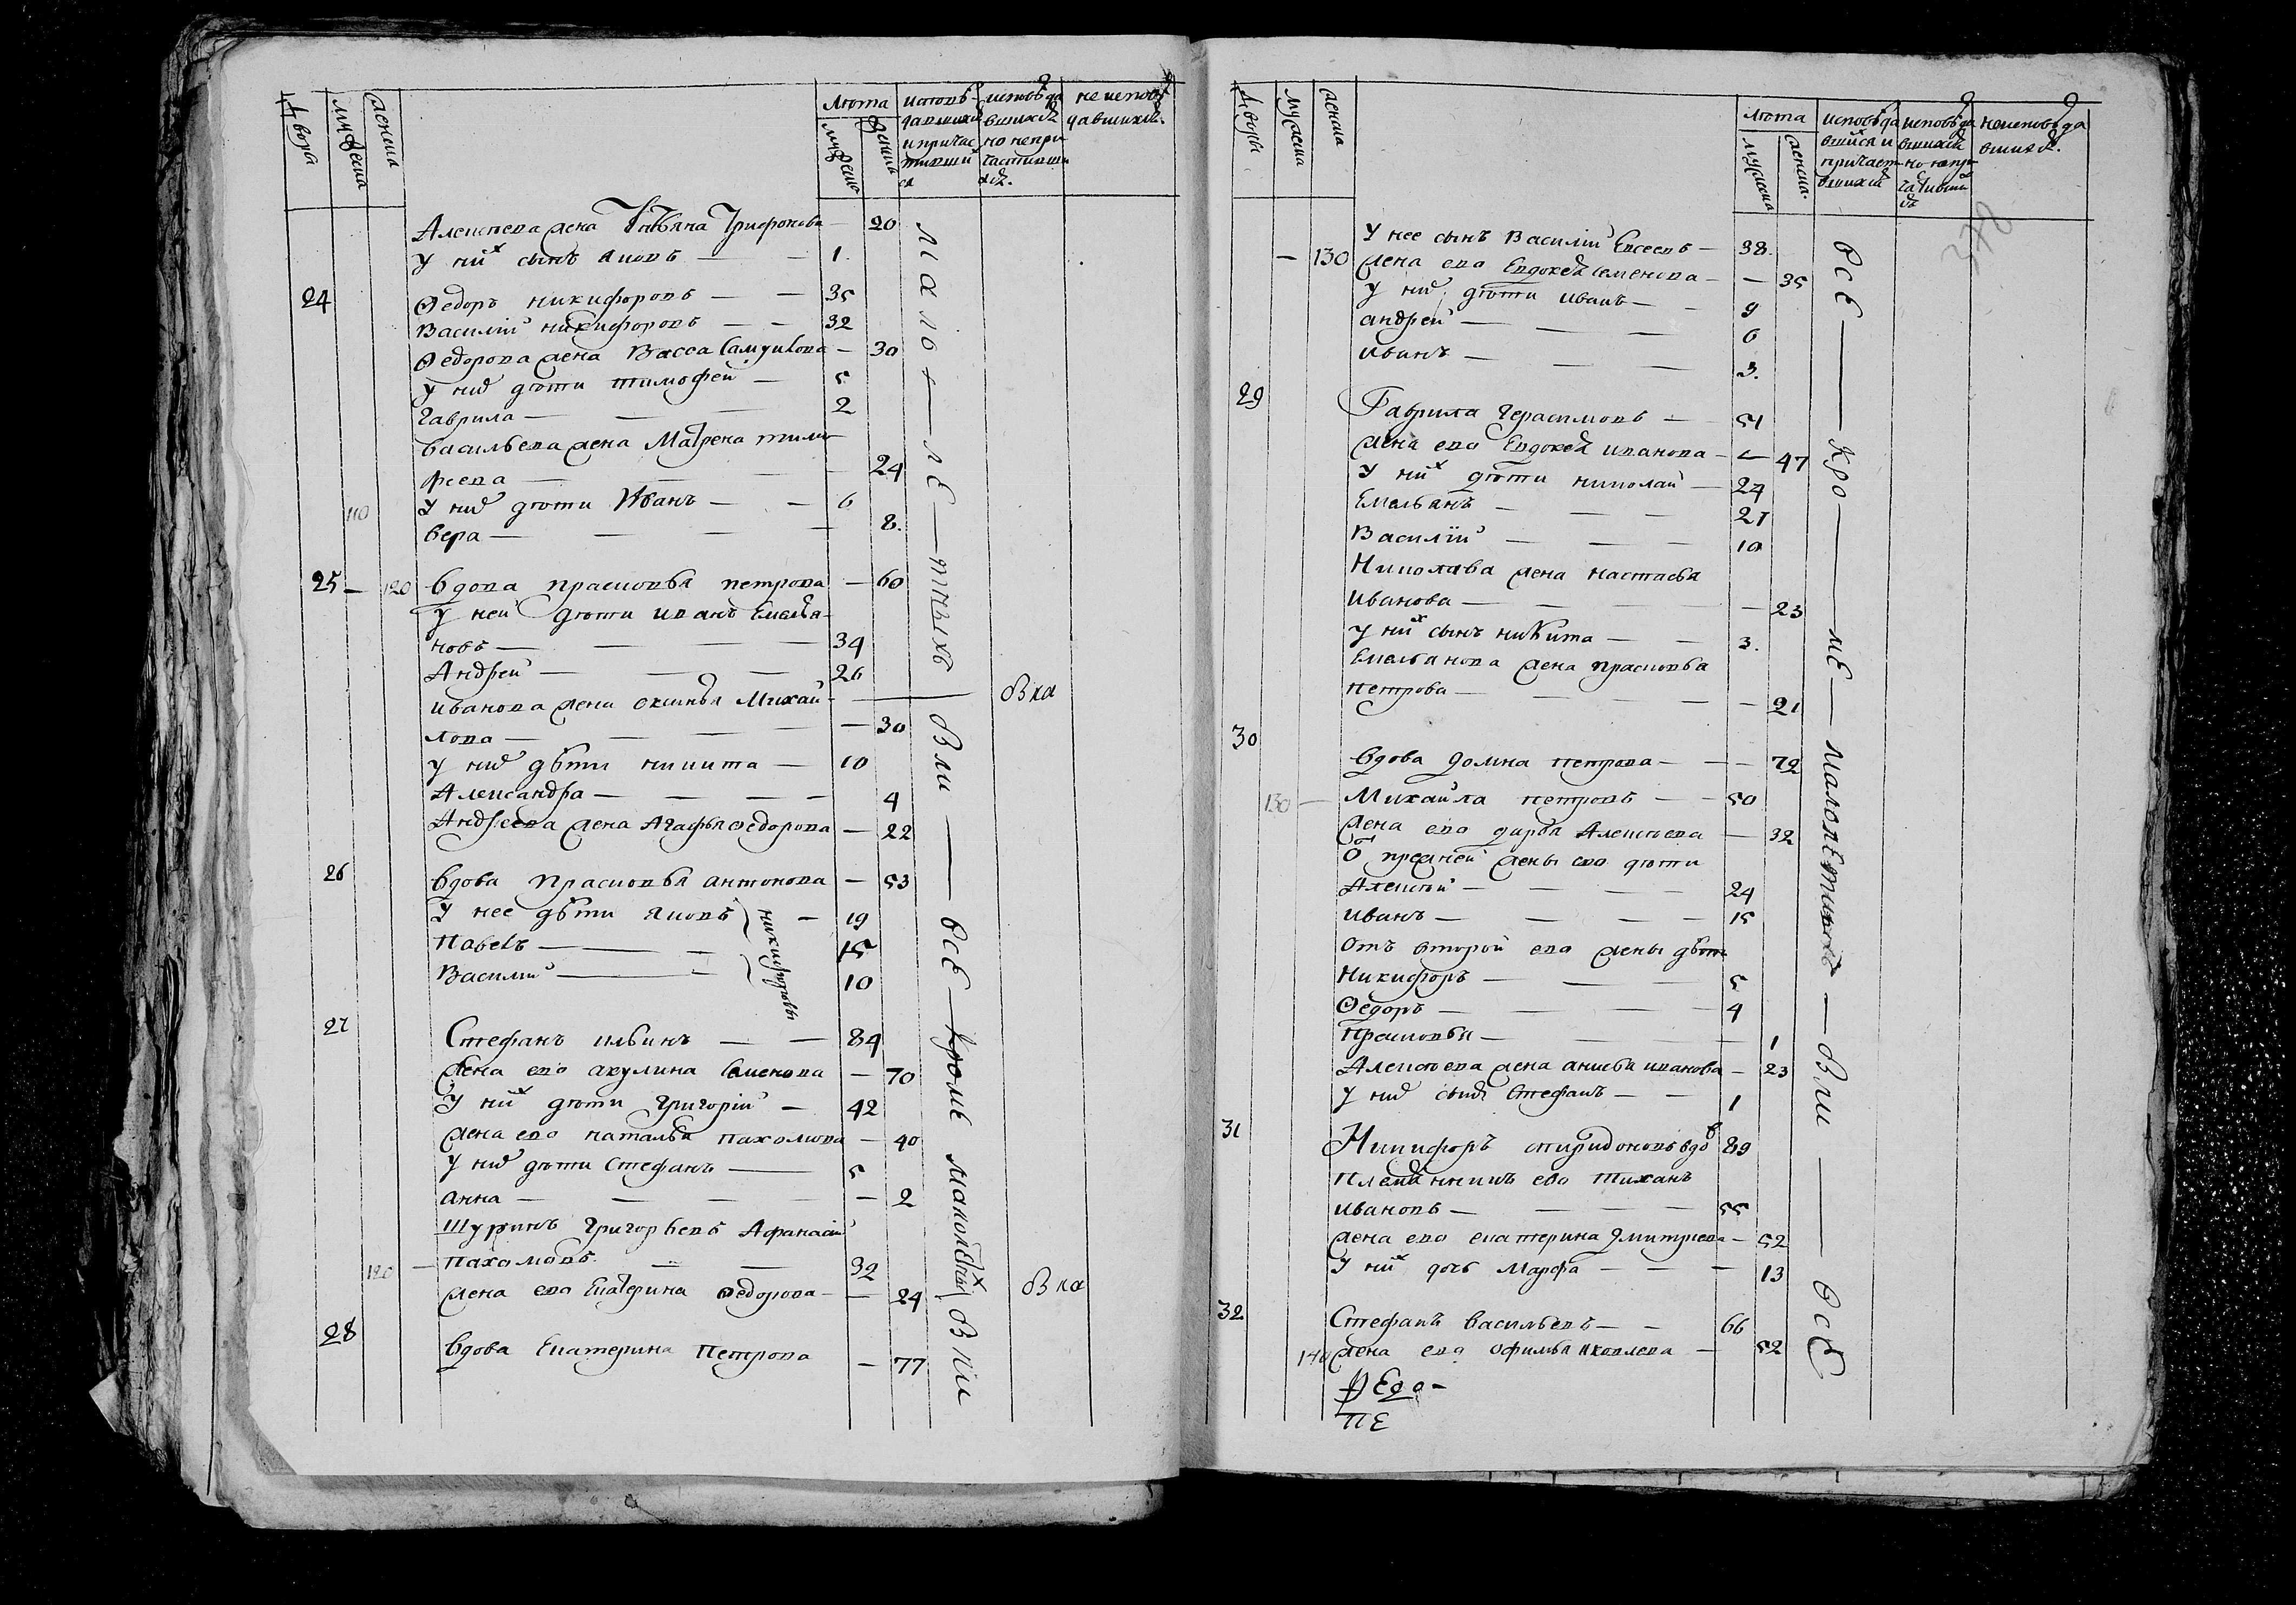 Двора мужеска женска лѣта мужеска женска исповѣдавшихся и причастившихся исповѣдавшихся но не причастившихся не исповѣдавшихся
Алексѣева жена Татьяна Трифонова — 20
У них сынъ Яковъ — — 1.
24 Ѳедоръ никифоровъ — — 35
Василий никифоровъ — — 32
Ѳедорова жена Васса Самуилова — 30
У них дѣти тимофей — 5
Гаврила — — — 2
Васильева жена Матрена тимо
феева — — — 24
У них дѣти Иванъ — — 6
110 Вера — — — — 8.
25 — 120 Вдова прасковья петрова — 60
У ней дѣти иванъ Емелья
новъ — — — — 34
Андрей — — — 26
Иванова жена оксинья Михай
лова — — — — 30
У них дѣти никита — 10
Александра — — — — 4
Андреева жена Агафья ѳедорова — 22
26 Вдова прасковья антонова — 53
У нее дѣти Яковъ — 19
Павелъ — — 15
Василий — — 10
никифоровы
27 Стефанъ ильинъ — — 84
Жена ево акулина Семенова — 70
У них дѣти григорий — 42
жена ево наталья пахомова — 40
У них дѣти Стефанъ — 5
анна — — — — 2
Шуринъ григорьевъ Афанасий
120 — пахомовъ — — 32
жена ево Екатерина ѳедорова — 24
28 Вдова Екатерина Петрова — 77
малолѣтныхъ
Вли всѣ кромѣ малолѣтных Вли
Вка
Вка
Дворы мужеска женска лѣта мужеска женска исповѣдавшихся и причаствшихся исповѣдавшихся но не причастившихся не исповѣдавшихся
У нее сынъ Василий Евсеевъ — 38.
— 130 жена ево Евдокея семенова — — 35
У них дѣти иванъ — — 9
андрей — — — 6
иванъ — — — 3.
29 Гаврила герасимовъ — 51
жена ево Евдокея иванова — — 47
У них дѣти николай — 24
Емельянъ — — — 21
Василий — — — 10
Николаева жена настасья
иванова — — — — 23
У них сынъ никита — — 3.
Емельянова жена прасковья
петрова — — — — 21
30 Вдова домна петрова — — — 72
130 — Михайла петровъ — — 50
жена ево дарья Алексѣева — 32
Ѿ прежней жены ево дѣти
Алексѣй — — — 24
иванъ — — — 15
отъ второй ево жены дѣти
Никифоръ — — — 5
Ѳедоръ — — — 4
прасковья — — — 1
Алексѣева жена анисья иванова — 23
У них сынъ Стефанъ — — 1
31 Никифоръ спиридоновъ вдов 89
племянникъ ево тиханъ
ивановъ — — — — 55
жена ево екатерина дмитриева — 52
У них дочь Марфа — — — 13
32 Стефанъ Васильевъ — — 66
140 жена ево офимья яковлева — 52
ПЕ
всѣ — кро — мѣ — малолѣтныхъ — Вли — всѣ